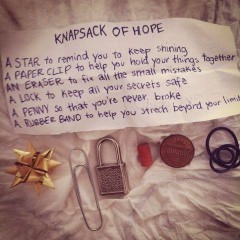 KNAPSACK OF HOPE
A STAR to remind you to keep shining
A PAPER CLIP to help you hold your things together
AN ERASER to fix all the small mistakes
A LOCK to keep all your secrets safe
A PENNY so that you're never broke
A RUBBER BAND to help you strech beyond your limi